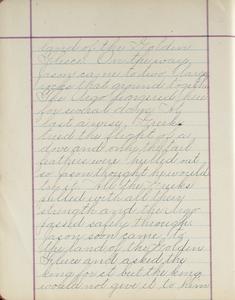 land of the Golden
Fleece. On the way
Jason came to two large
rocks that ground together
The Argo
for several days. At
last a wise Greek
tried the flight of a
dove and only the tail
feathers were pulled out
so Jason thought he would
try it. All the Greeks
pulled with all they
strength and the Argo
passed safely through
Jason soon came to
the land of the Golden
Fleece and asked the
king for it but the king
would not give it to him